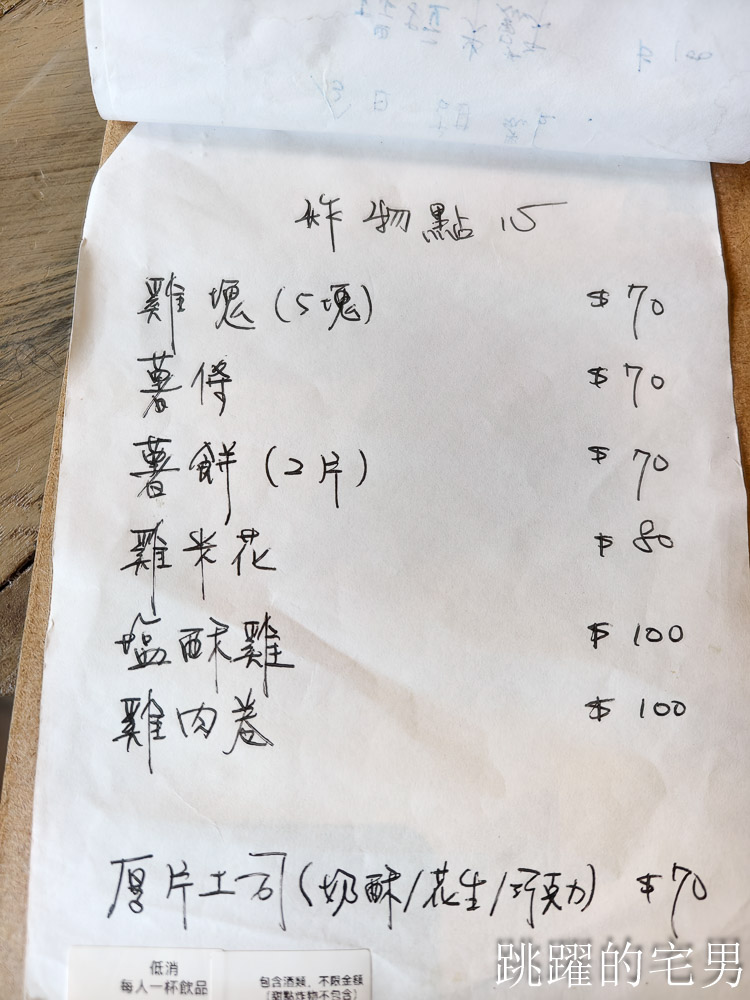 炸物點心
雞塊(5塊) $70
薯條 $70
薯餅(2片) $70
雞米花 $80
塩酥雞 $100
雞肉卷 $100
厚片土司(奶酥/花生/巧克力) $70
低消
每人一杯飲品
包含酒類，不限金額
(甜點炸物不包含)
跳躍的宅男